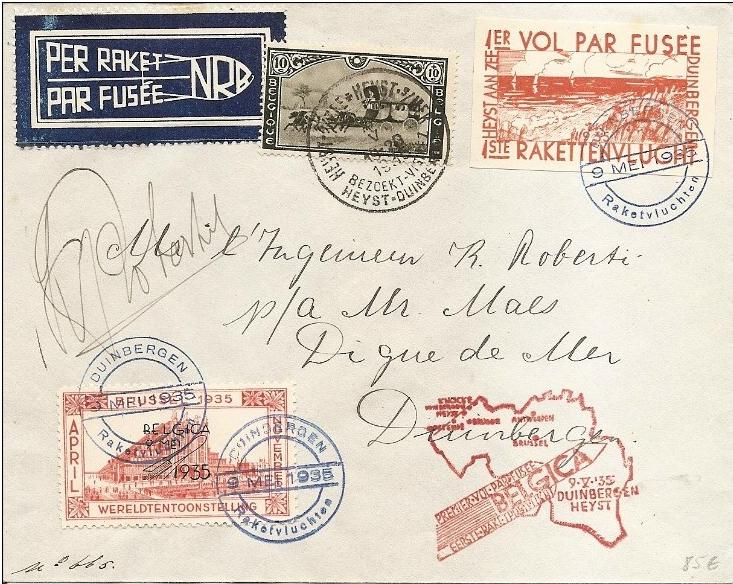 PER RAKET
PAR FUSÉE
NRB
10 10
BELGIQUE
BELGIE
HEYST
BEZOEKT
HEYST-DUINBE
1ER VOL PAR FUSÉE
HEYST AAN ZEE
DUINBERGEN
1STE RAKETTENVLUCHT
9 MEI 1935
Raketvluchten
l'Ingenieur K. Roberti
p/a Mr. Maes
Digue de Mer
Duinbergen
DUINBERGEN
9 MEI 1935
Raketvluchten
BRUSSEL 1935
APRIL
NOVEMBER
BELGICA
9 MEI
1935
WERELDTENTOONSTELLING
DUINBERGEN
9 MEI 1935
Raketvluchten
KNOCKE
ANTWERPEN
BRUSSEL
BELGICA
9-V-'35
DUINBERGEN
HEYST
nº 665.
85€